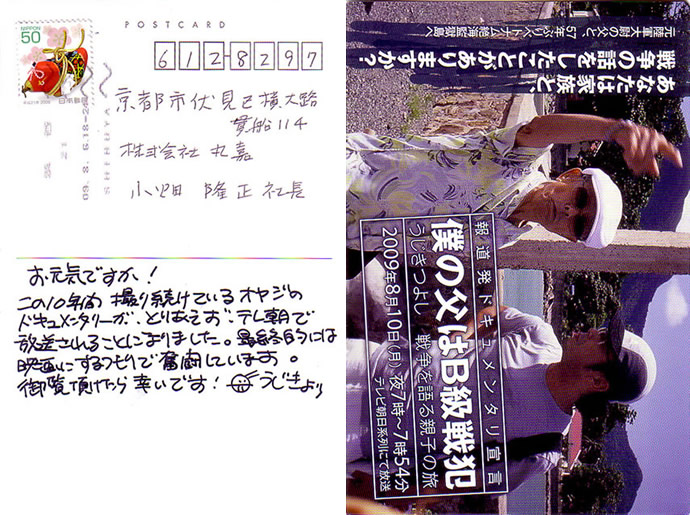 POSTCARD
NIPPON
50
6128297
京都市伏見区横大路
貫船114
株式会社 丸嘉
小畑 隆正 社長
お元気ですか!
この10年間 撮り続けているオヤジの
ドキュメンタリーが、とりあえず、テレ朝で
放送されることになりました。最終的には
映画にするつもりで奮闘しています。
御覧頂けたら幸いです!
うじきより
元陸軍大尉の父と、57年ぶりベトナム絶海監獄島へ
あなたは家族と、
戦争の話をしたことがありますか?
報道発ドキュメンタリ宣言
僕の父はB級戦犯
うじきつよし 戦争を語る親子の旅
2009年8月10日(月)夜7時~7時54分
テレビ朝日系列にて放送